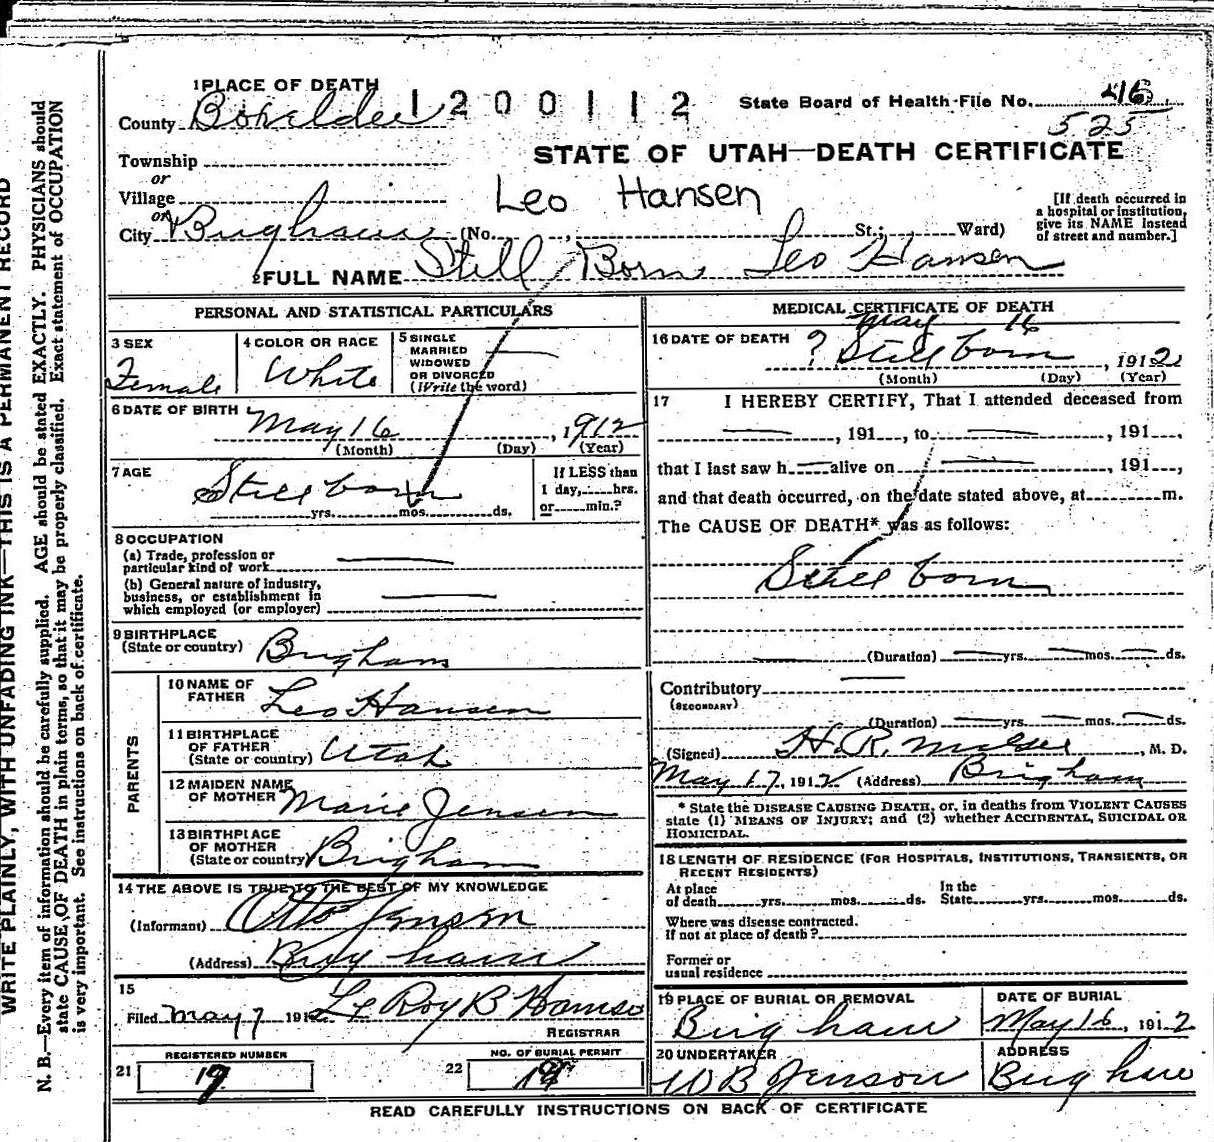 WRITE PLAINLY, WITH UNFADING INK—THIS IS A PERMANENT RECORD
N. B.—Every item of information should be carefully supplied. AGE should be stated EXACTLY. PHYSICIANS should
state CAUSE OF DEATH in plain terms, so that it may be properly classified. Exact statement of OCCUPATION
is very important. See instructions on back of certificate.
1 PLACE OF DEATH
1200112
State Board of Health-File No. 46
525
County Boxelder
STATE OF UTAH—DEATH CERTIFICATE
Township
or
Village
Leo Hansen
[If death occurred in
a hospital or institution,
give its NAME instead
of street and number.]
or
City Brigham (No. , St.; Ward)
2 FULL NAME Still Born Leo Hansen
PERSONAL AND STATISTICAL PARTICULARS
3 SEX
Female
4 COLOR OR RACE
White
5 SINGLE
MARRIED
WIDOWED
OR DIVORCED
(Write the word)
6 DATE OF BIRTH May 16, 1912
(Month) (Day) (Year)
7 AGE
Still born
yrs. mos. ds.
If LESS than
1 day, hrs.
or min.?
8 OCCUPATION
(a) Trade, profession or
particular kind of work
(b) General nature of industry,
business, or establishment in
which employed (or employer)
9 BIRTHPLACE
(State or country) Brigham
PARENTS
10 NAME OF
FATHER Leo Hansen
11 BIRTHPLACE
OF FATHER
(State or country) Utah
12 MAIDEN NAME
OF MOTHER Marie Jensen
13 BIRTHPLACE
OF MOTHER
(State or country) Brigham
14 THE ABOVE IS TRUE TO THE BEST OF MY KNOWLEDGE
(Informant) Otto Jensen
(Address) Brigham
15
Filed May 7 1912 Le Roy B
REGISTRAR
REGISTERED NUMBER
21 19
NO. OF BURIAL PERMIT
22 19
MEDICAL CERTIFICATE OF DEATH
May 16
16 DATE OF DEATH
? Still born, 1912
(Month) (Day) (Year)
17 I HEREBY CERTIFY, That I attended deceased from
— , 191 , to — , 191 ,
that I last saw h— alive on — , 191 ,
and that death occurred, on the date stated above, at m.
The CAUSE OF DEATH* was as follows:
Still born
(Duration) — yrs. — mos. — ds.
Contributory —
(SECONDARY)
(Duration) — yrs. — mos. — ds.
(Signed) H. R. , M. D.
May 17, 1912 (Address) Brigham
* State the DISEASE CAUSING DEATH, or, in deaths from VIOLENT CAUSES
state (1) MEANS OF INJURY; and (2) whether ACCIDENTAL, SUICIDAL OR
HOMICIDAL.
18 LENGTH OF RESIDENCE (FOR HOSPITALS, INSTITUTIONS, TRANSIENTS, OR
RECENT RESIDENTS)
At place
of death yrs. mos. ds.
In the
State yrs. mos. ds.
Where was disease contracted.
If not at place of death?
Former or
usual residence
19 PLACE OF BURIAL OR REMOVAL
Brigham
DATE OF BURIAL
May 16, 1912
20 UNDERTAKER
W B Jenson
ADDRESS
Brigham
READ CAREFULLY INSTRUCTIONS ON BACK OF CERTIFICATE